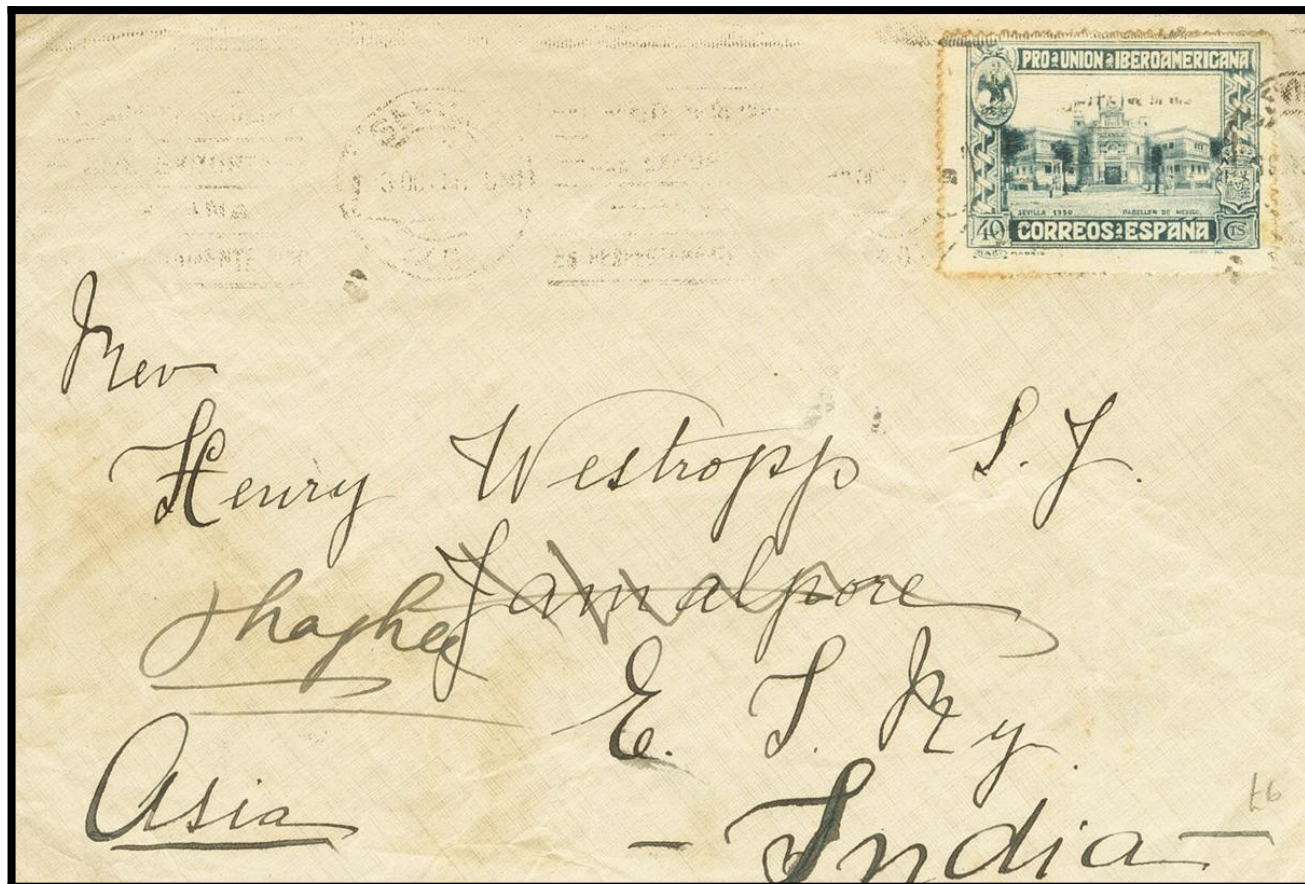 PRO UNION IBEROAMERICANA
SEVILLA 1930 PABELLON DE MEXICO
40 CORREOS ESPAÑA CTS
MADRID
Rev
Henry Westropp S.J.
Jamalpore
E. I. Ry.
Asia
- India -